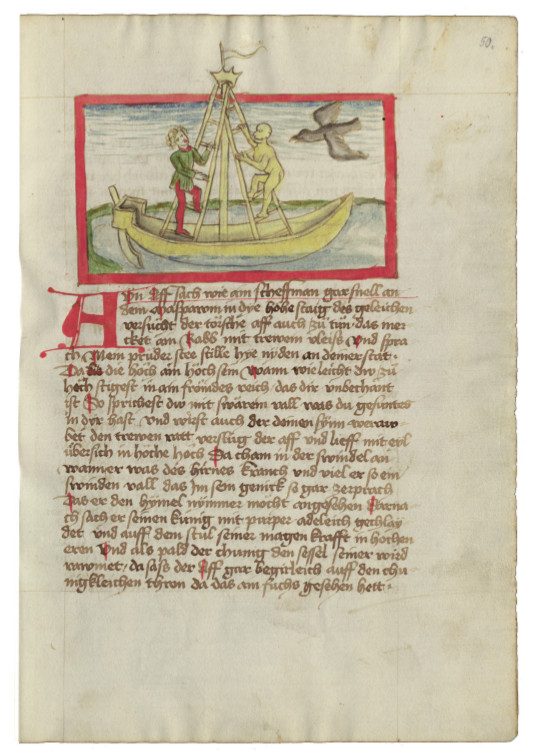 50.
Ein Aff sach wie ain scheffman gar snell an
dem Maspawm in dye hohe staig des geleichen
versücht der törsche aff auch zü tün das mer
cket ain Rabb mit trewem vleiss Vnd spra
ch Mein prüder stee stille hye nyden an deiner stat
Da die höch am höchsten Wann wie leicht dw zü
hoch stigest in ain frömdes reich das dir vnbechant
ist So sprichest dw mit swärem vall was du gesuntes
in dir hast Vnd wirst auch der deinen synn
bet den trewen ratt verslüg der aff vnd lieff mit eyl
übersich in höhe hoch Da cham in der swindel an
wann er was des hirnes kranck vnd viel er so ein
swinden vall das Im sein genick so gar zerprach
Das er den hymel nymmer mocht angesehen Darna
ch sach er seinen künig mit purper adeleich gechlay
det vnd auff dem stul seiner magen krafft in hochen
eren Vnd als pald der chunig den sessel seiner wird
rawmet da sass der Aff gar begirleich auff den chü
nigkleichen thron da das ain fuchs gesehen hett